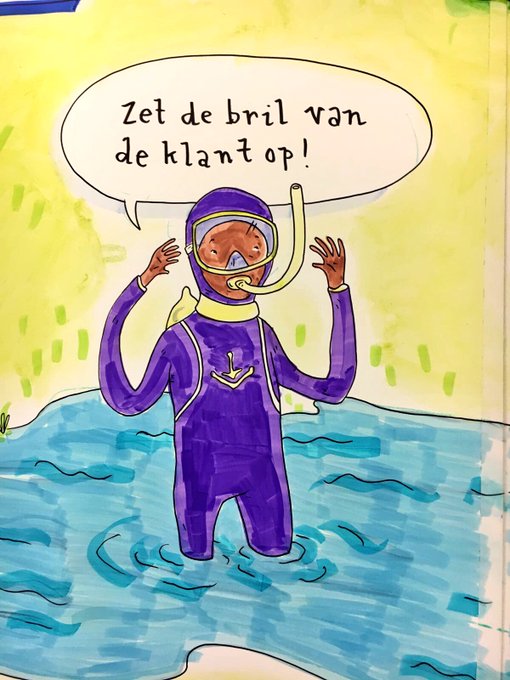 Zet de bril van
de klant op!